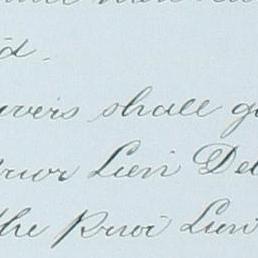 d.
vers shall g
rior Lien De
the Prior Lien